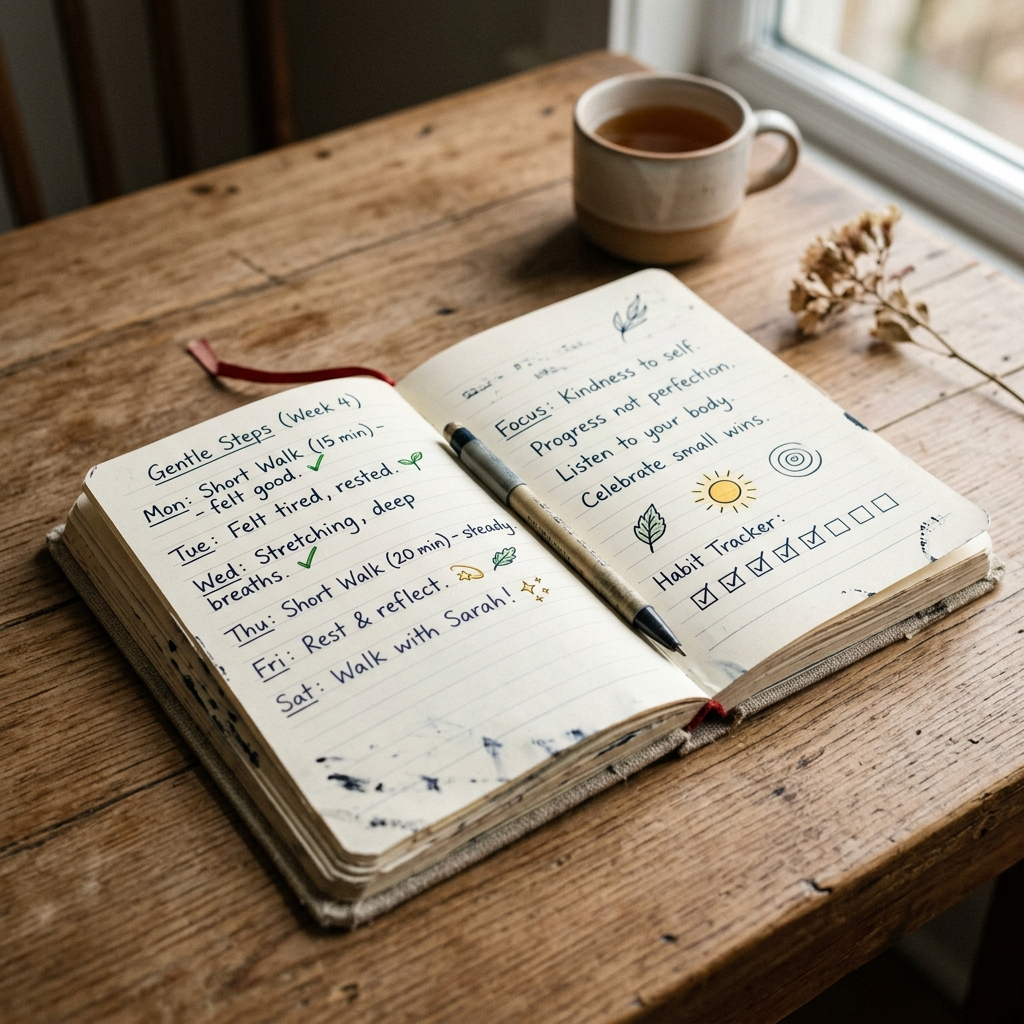 Gentle Steps (Week 4)
Mon: Short Walk (15 min) -
- felt good. ✓
Tue: Felt tired, rested.
Wed: Stretching, deep
breaths. ✓
Thu: Short Walk (20 min) - steady.
Fri: Rest & reflect.
Sat: Walk with Sarah!
Focus: Kindness to self.
Progress not perfection.
Listen to your body.
Celebrate small wins.
Habit Tracker:
☑ ☑ ☑ ☑ ☑ ☐ ☐ ☐